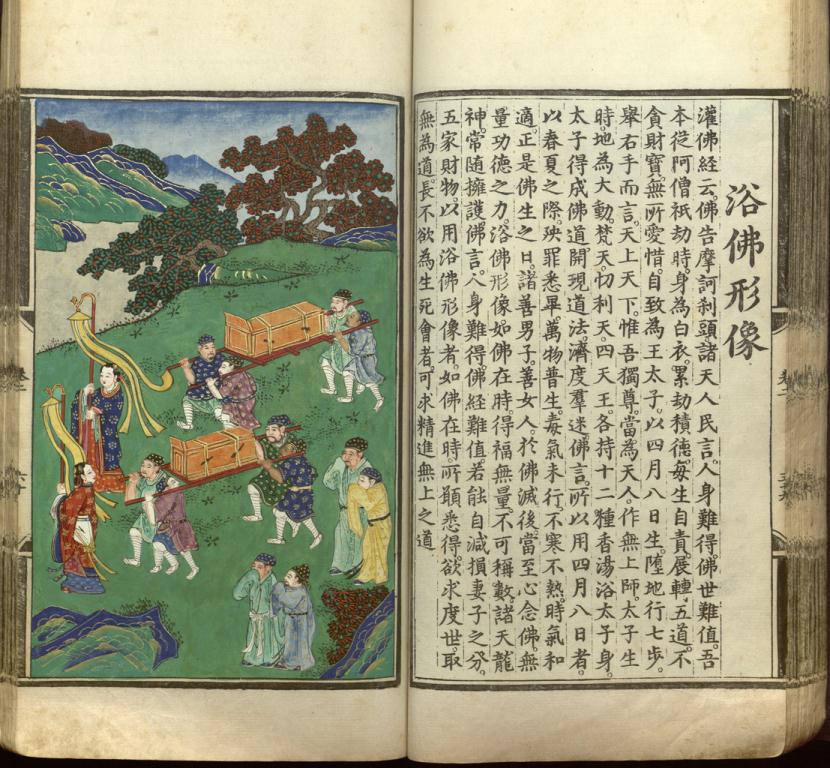 浴佛形像
灌佛經云。佛告摩訶刹頭諸天人民言。人身難得。佛世難值。吾
本從阿僧祇劫時。身為白衣。累劫積德。每生自責。展轉五道。不
貪財寶。無所愛惜。自致為王太子。以四月八日生。墮地行七步。
舉右手而言。天上天下。惟吾獨尊。當為天人作無上師。太子生
時。地為大動。梵天忉利天。四天王。各持十二種香湯。浴太子身。
太子得成佛道。開現道法。濟度羣迷。佛言。所以用四月八日者。
以春夏之際。殃罪悉畢。萬物普生。毒氣未行。不寒不熱。時氣和
適。正是佛生之日。諸善男子。善女人。於佛滅後。當至心念佛。無
量功德之力。浴佛形像。如佛在時。得福無量。不可稱數。諸天龍
神。常隨擁護。佛言。人身難得。佛經難值。若能自減損妻子之分。
五家財物。以用浴佛形像者。如佛在時。所願悉得。欲求度世。取
無為道。長不欲為生死會者。可求精進無上之道。